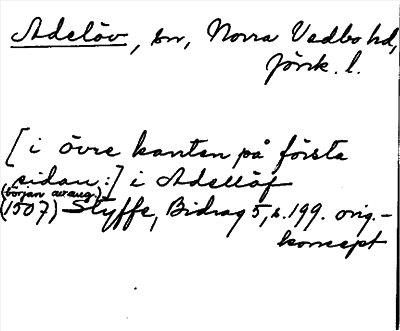 Adelöv, sn, Norra Vedbo hd,
Jönk. l.
[i övre kanten på första
sidan:] i Adelöf
(början av aug.)
(1507) Styffe, Bidrag 5, s. 199. orig.-
koncept